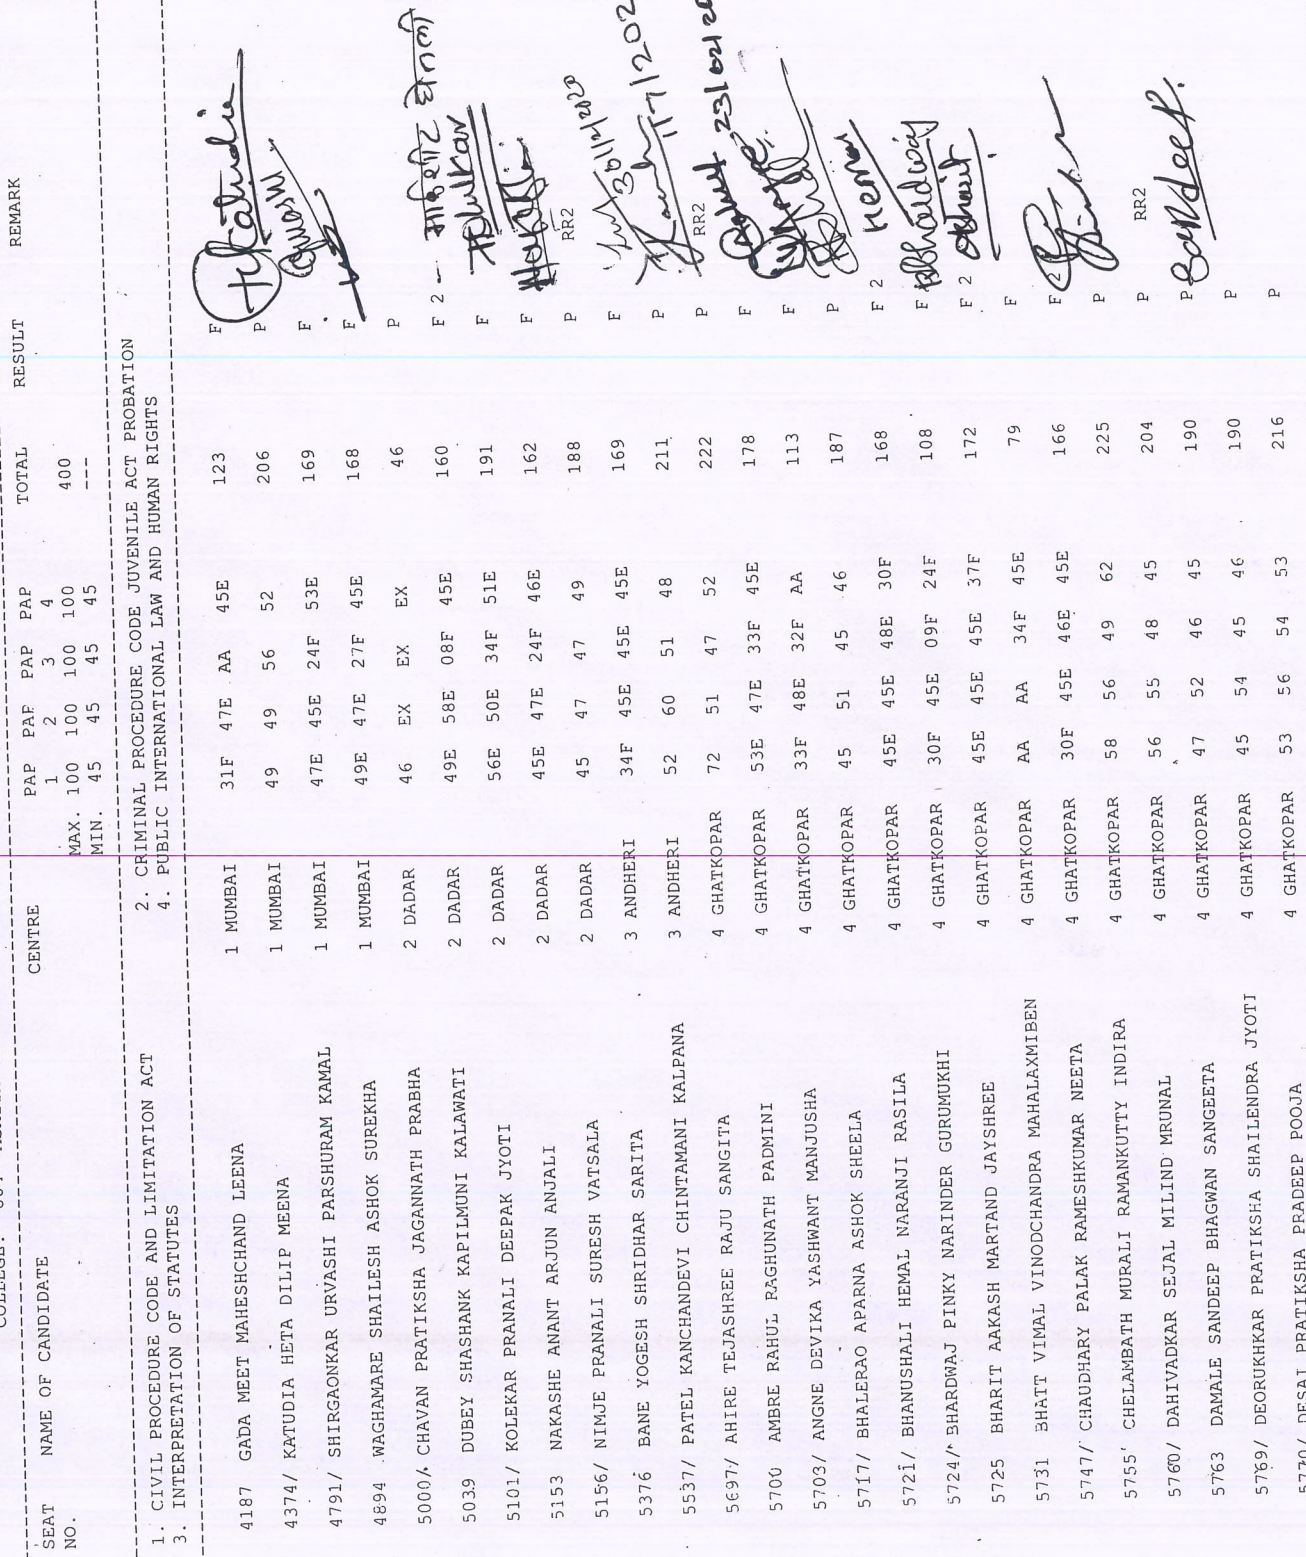 SEAT NO. NAME OF CANDIDATE CENTRE PAP 1 PAP 2 PAP 3 PAP 4 TOTAL RESULT REMARK
MAX. 100 100 100 100 400
MIN. 45 45 45 45 ---
1. CIVIL PROCEDURE CODE AND LIMITATION ACT 2. CRIMINAL PROCEDURE CODE JUVENILE ACT PROBATION
3. INTERPRETATION OF STATUTES 4. PUBLIC INTERNATIONAL LAW AND HUMAN RIGHTS
4187 GADA MEET MAHESHCHAND LEENA 1 MUMBAI 31F 47E AA 45E 123 F
4374/ KATUDIA HETA DILIP MEENA 1 MUMBAI 49 49 56 52 206 P
4791/ SHIRGAONKAR URVASHI PARSHURAM KAMAL 1 MUMBAI 47E 45E 24F 53E 169 F
4894 WAGHAMARE SHAILESH ASHOK SUREKHA 1 MUMBAI 49E 47E 27F 45E 168 F
5000/ CHAVAN PRATIKSHA JAGANNATH PRABHA 2 DADAR 46 EX EX EX 46 P
5039 DUBEY SHASHANK KAPILMUNI KALAWATI 2 DADAR 49E 58E 08F 45E 160 F 2
5101/ KOLEKAR PRANALI DEEPAK JYOTI 2 DADAR 56E 50E 34F 51E 191 F
5153 NAKASHE ANANT ARJUN ANJALI 2 DADAR 45E 47E 24F 46E 162 F
5156/ NIMJE PRANALI SURESH VATSALA 2 DADAR 45 47 47 49 188 P RR2
5376 BANE YOGESH SHRIDHAR SARITA 3 ANDHERI 34F 45E 45E 45E 169 F
5537/ PATEL KANCHANDEVI CHINTAMANI KALPANA 3 ANDHERI 52 60 51 48 211 P
5697/ AHIRE TEJASHREE RAJU SANGITA 4 GHATKOPAR 72 51 47 52 222 P RR2
5700 AMBRE RAHUL RAGHUNATH PADMINI 4 GHATKOPAR 53E 47E 33F 45E 178 F
5703/ ANGNE DEVIKA YASHWANT MANJUSHA 4 GHATKOPAR 33F 48E 32F AA 113 F
5717/ BHALERAO APARNA ASHOK SHEELA 4 GHATKOPAR 45 51 45 46 187 P
5721/ BHANUSHALI HEMAL NARANJI RASILA 4 GHATKOPAR 45E 45E 48E 30F 168 F 2
5724/ BHARDWAJ PINKY NARINDER GURUMUKHI 4 GHATKOPAR 30F 45E 09F 24F 108 F
5725 BHARIT AAKASH MARTAND JAYSHREE 4 GHATKOPAR 45E 45E 45E 37F 172 F 2
5731 BHATT VIMAL VINODCHANDRA MAHALAXMIBEN 4 GHATKOPAR AA AA 34F 45E 79 F
5747/ CHAUDHARY PALAK RAMESHKUMAR NEETA 4 GHATKOPAR 30F 45E 46E 45E 166 F 2
5755 CHELAMBATH MURALI RAMANKUTTY INDIRA 4 GHATKOPAR 58 56 49 62 225 P
5760/ DAHIVADKAR SEJAL MILIND MRUNAL 4 GHATKOPAR 56 55 48 45 204 P RR2
5763 DAMALE SANDEEP BHAGWAN SANGEETA 4 GHATKOPAR 47 52 46 45 190 P
5769/ DEORUKHKAR PRATIKSHA SHAILENDRA JYOTI 4 GHATKOPAR 45 54 45 46 190 P
5770/ DESAI PRATIKSHA PRADEEP POOJA 4 GHATKOPAR 53 56 54 53 216 P